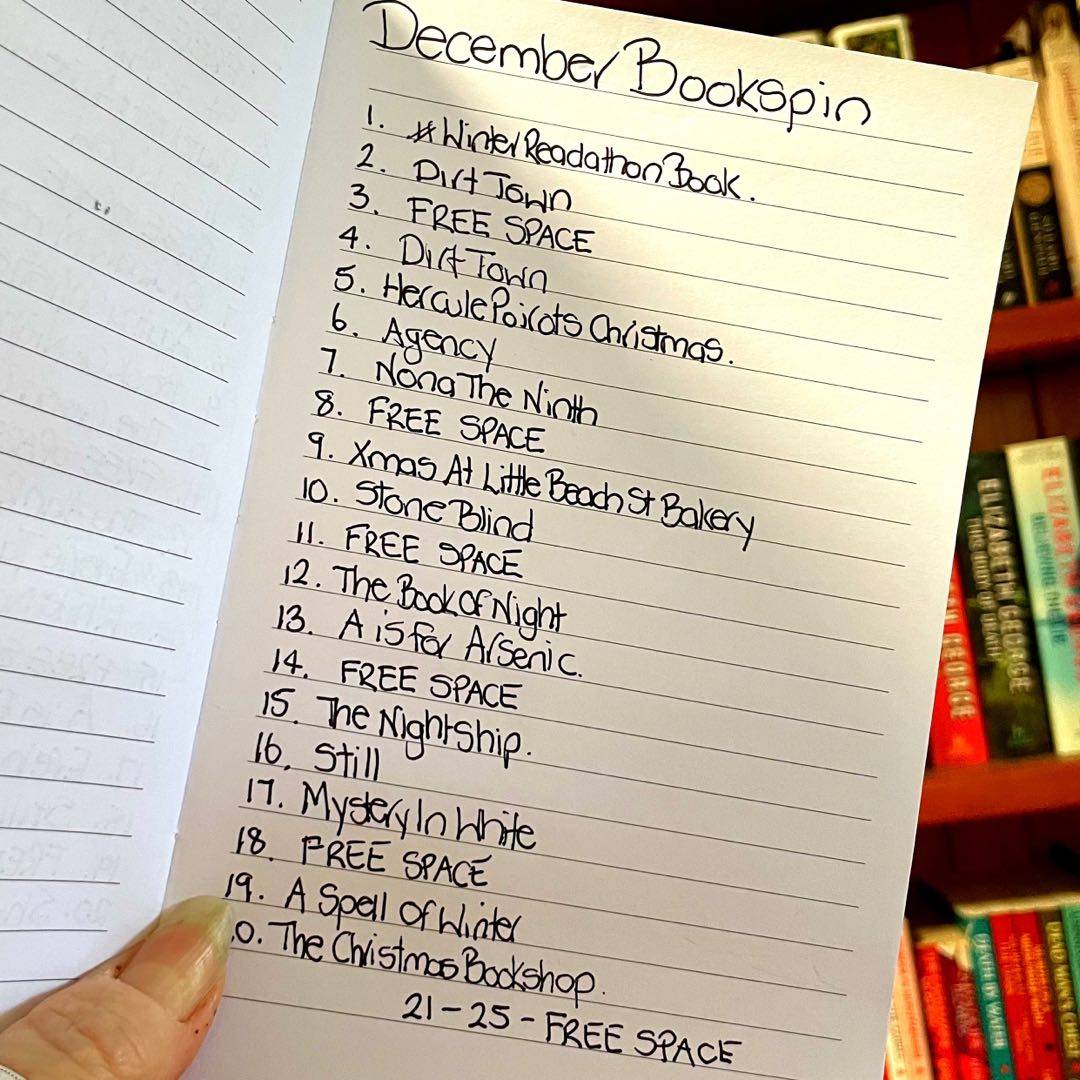 December Bookspin
1. #Winter Readathon Book.
2. Dirt Town
3. FREE SPACE
4. Dirt Town
5. Hercule Poirots Christmas.
6. Agency
7. Nona The Ninth
8. FREE SPACE
9. Xmas At Little Beach St Bakery
10. Stone Blind
11. FREE SPACE
12. The Book Of Night
13. A is for Arsenic.
14. FREE SPACE
15. The Night Ship.
16. Still
17. Mystery In White
18. FREE SPACE
19. A Spell Of Winter
0. The Christmas Bookshop.
21-25-FREE SPACE
GEORGE
ELIZABETH GEORGE
THE BODY OF DEATH
DEATH BY WATER
DEAD MAN'S CHEST